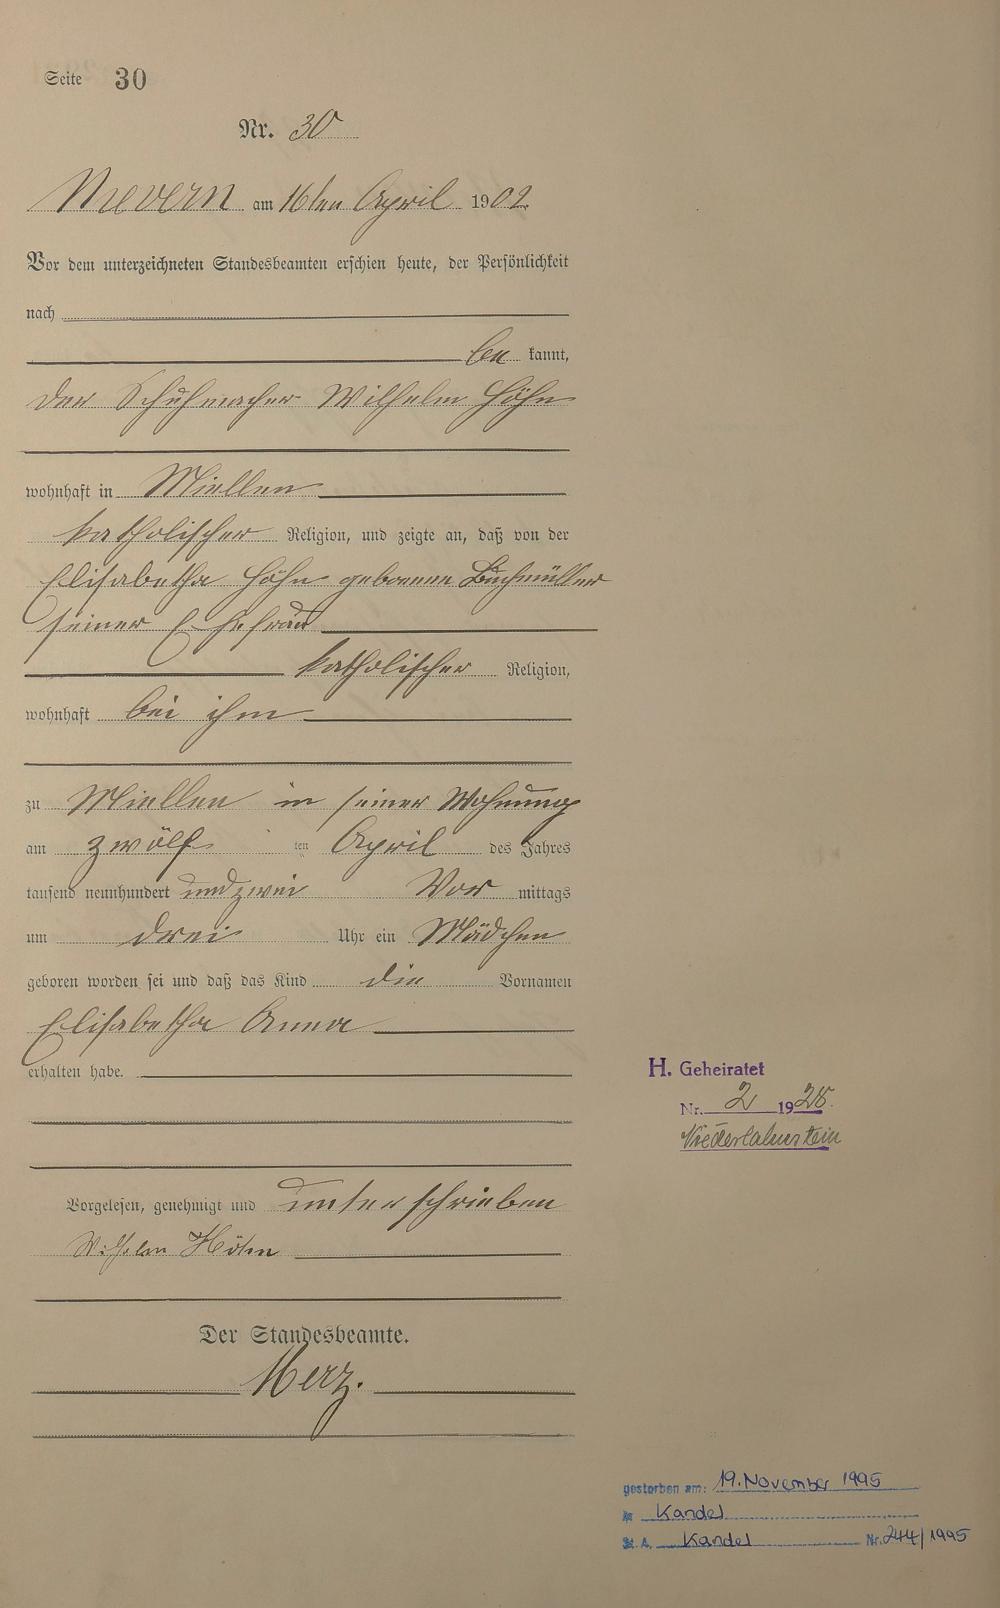 Seite 30
Nr. 30
Nievern am 16ten April 1902.
Vor dem unterzeichneten Standesbeamten erschien heute, der Persönlichkeit
nach
be kannt,
der Schuhmacher Wilhelm Höhn
wohnhaft in Miellen
katholischer Religion, und zeigte an, daß von der
Elisabetha Höhn geborenen Buchmüller
seiner Ehefrau
katholischer Religion,
wohnhaft bei ihm
zu Miellen in seiner Wohnung
am zwölf ten April des Jahres
tausend neunhundert und zwei Vor mittags
um drei Uhr ein Mädchen
geboren worden sei und daß das Kind die Vornamen
Elisabetha Anna
erhalten habe.
H. Geheiratet
Nr. 2 1928.
Niederlahnstein
Vorgelesen, genehmigt und unterschrieben
Wilhelm Höhn
Der Standesbeamte.
Merz.
gestorben am: 19. November 1995
in Kandel
St. A. Kandel Nr. 244/1995